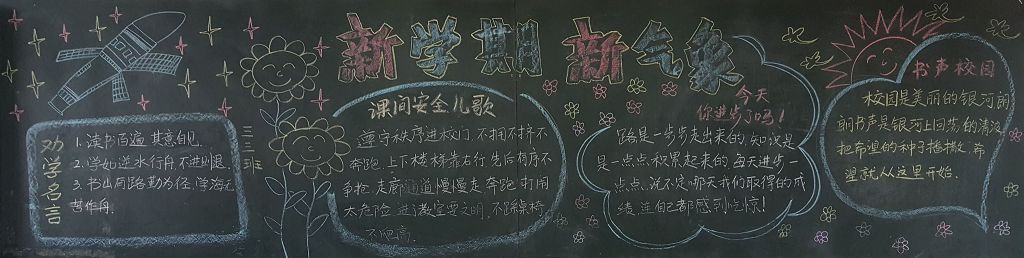 新学期 新气象
劝学名言
1. 读书百遍 其意自见.
2. 学如逆水行舟,不进则退.
3. 书山有路勤为径,学海无
苦作舟.
三三班
课间安全儿歌
遵守秩序进校门 不拥不挤不
奔跑 上下楼梯靠右行 先后有序不
争抢 走廊通道慢慢走 奔跑打闹
太危险 进了教室要文明,不踩桌椅
不爬高.
今天
你进步了吗!
路是一步步走出来的,知识是
是一点点积累起来的 每天进步一
点点,说不定哪天我们取得的成
绩,连自己都感到吃惊!
书声校园
校园是美丽的银河,
书声是银河上回荡的清波
把希望的种子播撒,希
望就从这里开始.